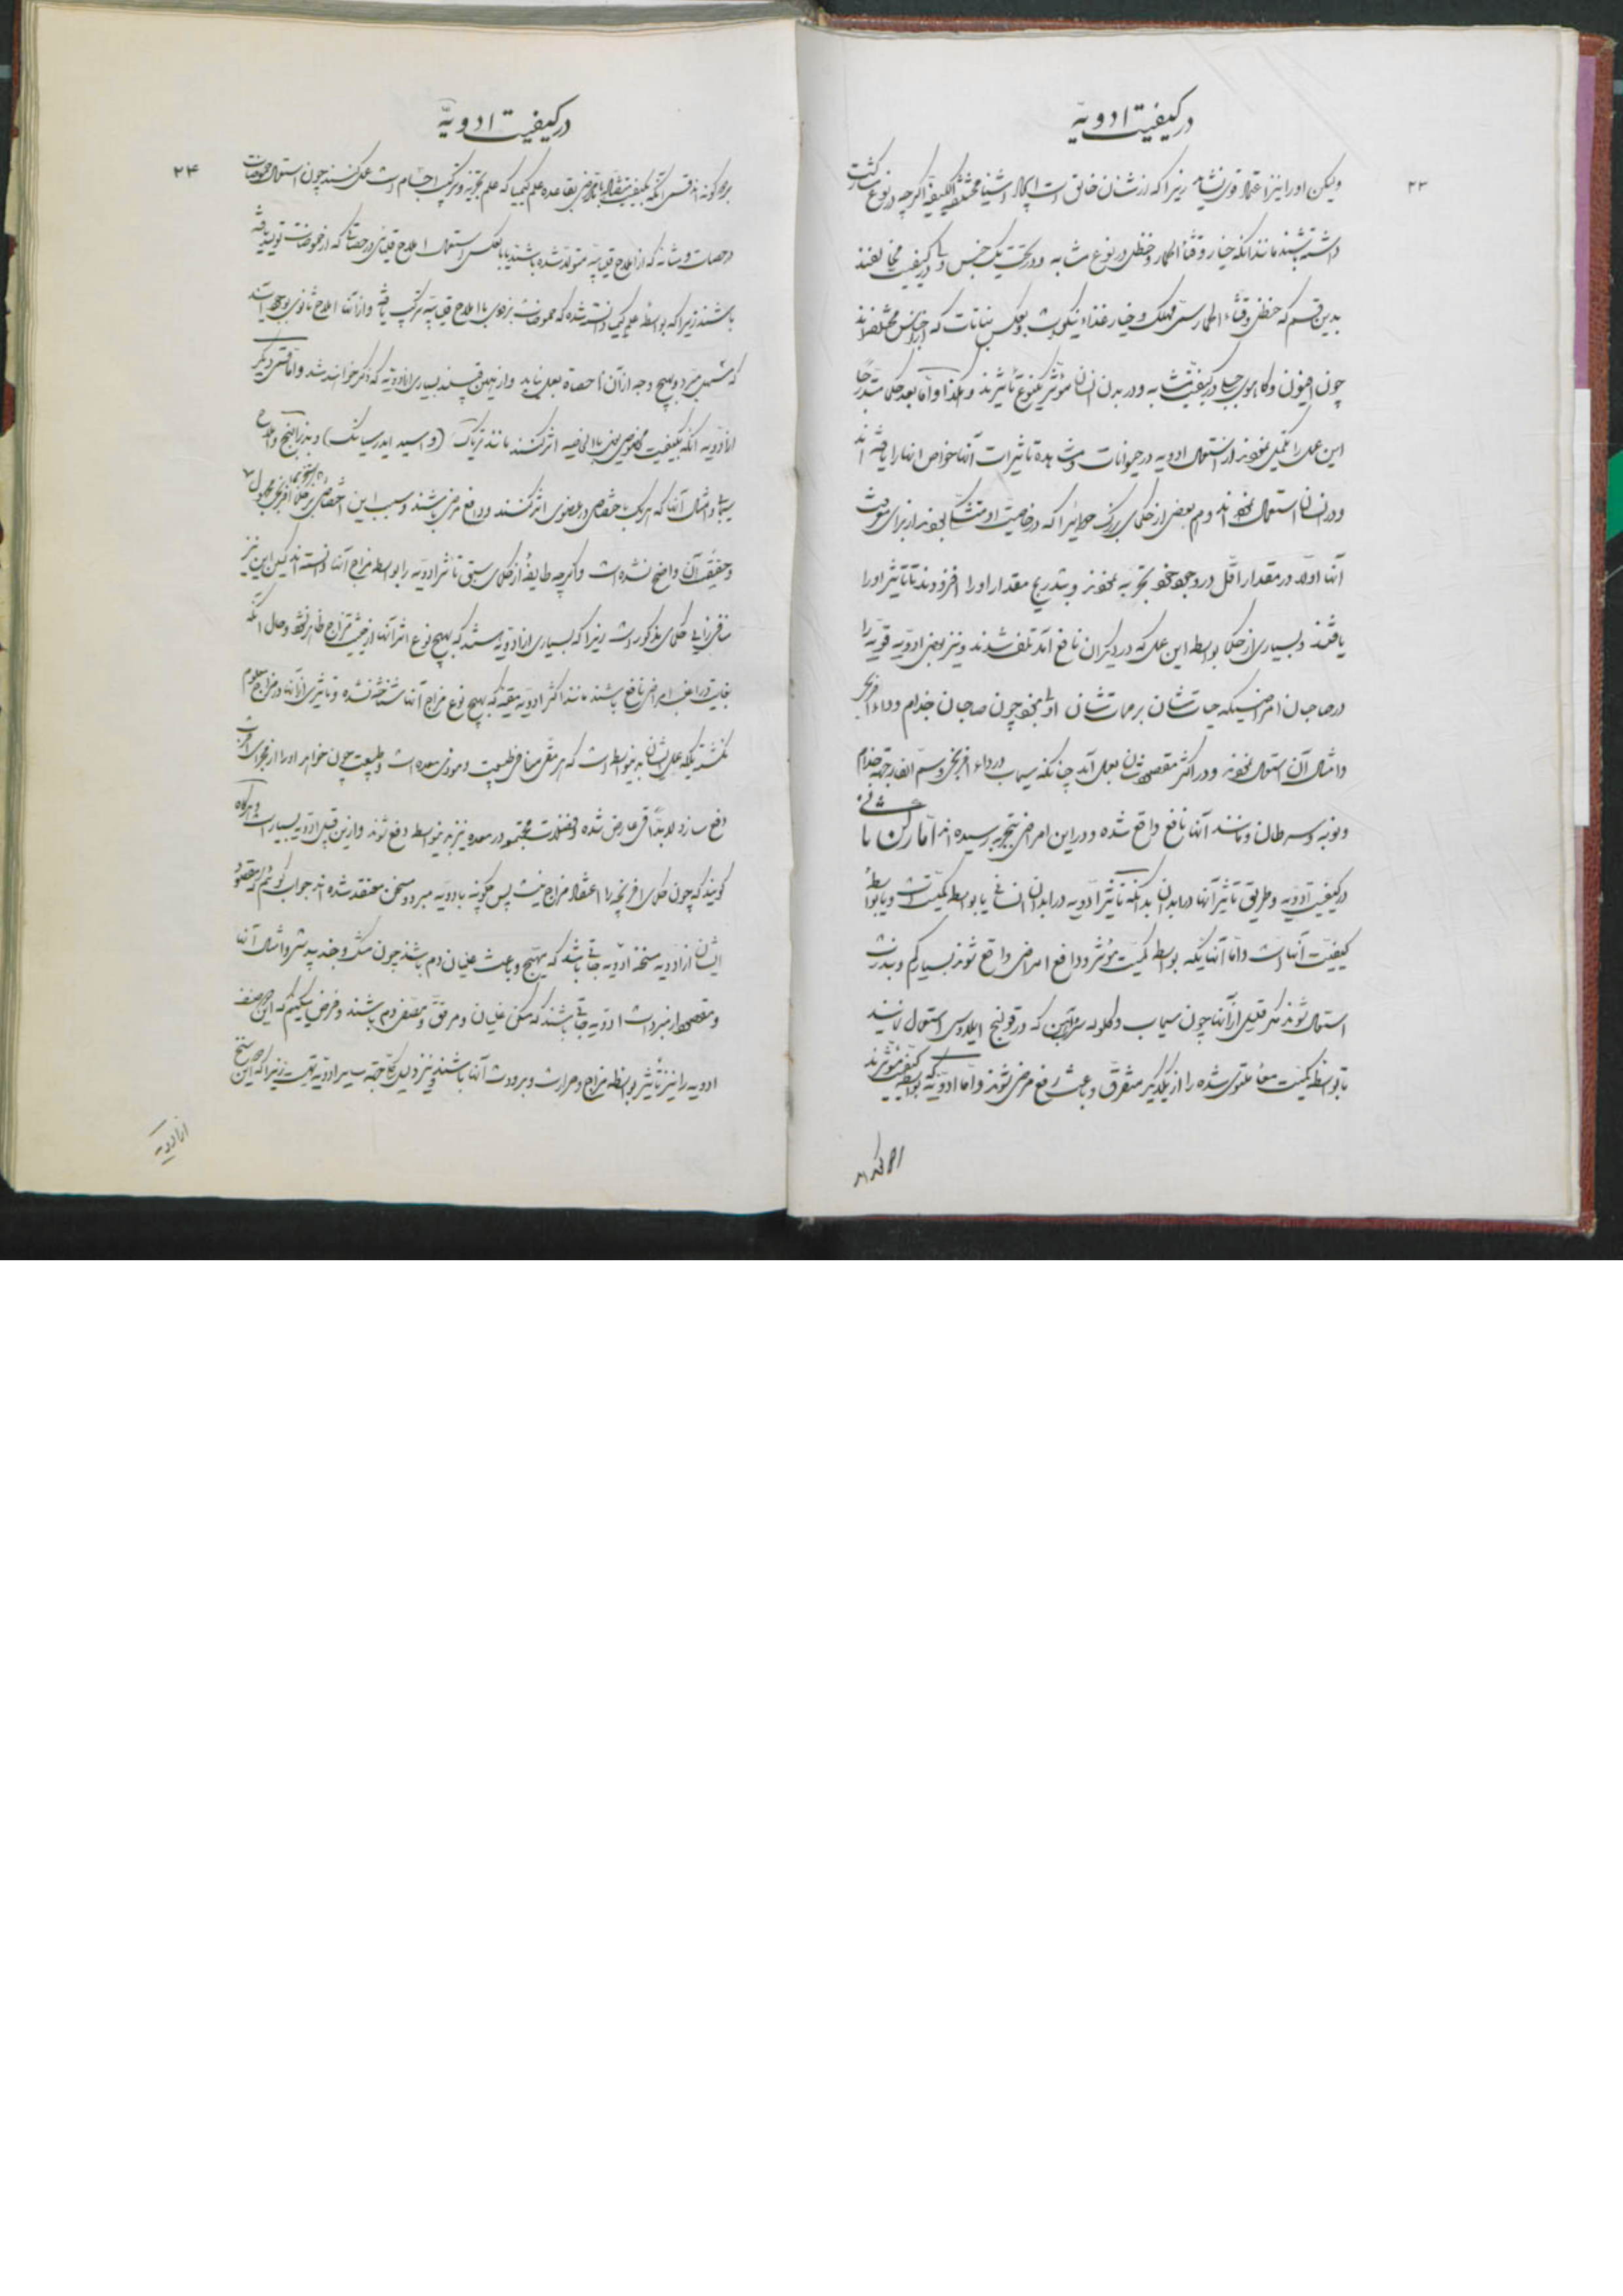 در کیفیت ادویة
۲۳
ولیکن او را نیز اعتماد قوی نشاید زیرا که از شان خالق است ایجاد اشیاء مختلفة الکیفیة اگرچه در نوع مشارکت
داشته باشند مانند آنکه خیار و قثاء الحمار و حنظل در نوع مشابه و در تحت یک جنس و در کیفیت مخالفند
بدین قسم که حنظل و قثاء الحمار سم مهلک و خیار غذاء نیکوست و بعکس نباتات که از اجناس مختلفه اند
چون افیون و کاهوی در کیفیت مشابه و در بدن انسان مؤثر بیک نوع تأثیرند و هکذا و اما بعد حکما متدرجا
این عمل را تکمیل نموده از استعمال ادویه در حیوانات و مشاهده تاثیرات آنها خواص آنها را یافته اند
و در انسان استعمال نموده اند و هم بعضی از حکمای بزرگ دوائیرا که در خاصیت او متشکک بودند از برای معرفت
آنها اولا در مقدار اقل در وجود خود تجربه نموده و بتدریج مقدار او را افزودند تا تاثیر او را
یافتند و بسیاری از حکما بواسطه این عمل که در دیگران نافع آمد تلف شدند و نیز بعضی ادویه قویه را
در صاحبان امراضیکه حیاتشان بر مماتشان اولی نبود چون صاحبان جذام و داء افرنجی
و امثال آن استعمال نموده و در اکثر مقصودشان بعمل آمد چنانکه سیماب در داء افرنجی و سم الفار جهة جذام
و نوبه و سرطان و مانند آنها نافع واقع شده و در این امراض بتجربه رسیده اند اما رکن ثانی
در کیفیت ادویه و طریق تاثیر آنها در ابدان بدانکه تاثیر ادویه در ابدان انسانی یا بواسطه کمیت است و یا بواسطه
کیفیت آنها است و اما آنهائیکه بواسطه کمیت مؤثر و دافع امراض واقع شوند بسیار کم و بندرت
استعمال شوند مگر قلیلی از آنها چون سیماب و گلوله سرب که در قولنج ایلاوس استعمال نمایند
تا بواسطه کمیت معاء ملتوی شده را از یکدیگر متفرق و باعث رفع مرض شوند و اما ادویه که بواسطه کیفیت مؤثرند
در کیفیت ادویة
۲۴
بر دو گونه اند قسمی آنکه بکیفیت بقاعده علم کیمیا که علم تجزیه و ترکیب اجسام است عمل کنند چون استعمال حموضات
در حصات مثانه که از املاح قلیائیه متولد شده باشند یا بالعکس استعمال املاح قلیائی در حصاتی که از حموضات تولید یافته
باشند زیرا که بواسطه علم کیمیا دانسته شده که حموضات بزودی با املاح قلیائیه ترکیب یافته و از آنها املاح ثانوی بوجود آیند
و بهیچ وجه از آنها حصاة بعمل نیاید و از همین قسمند بسیاری از ادویه که ذکر خواهند شد و اما قسمی دیگر
از ادویه آنکه بکیفیت مخصوص یعنی بالخاصیه اثر کنند مانند تریاک (و اسید ایدرسیانیک) و بذر البنج و املاح
سیماب و امثال آنها که هر یک باختصاص در عضوی اثر کنند و دافع مرض باشند و سبب این اختصاص بر حکماء افرنجی مجهول
و حقیقت آن واضح نشده است و اگرچه طایفه از حکمای سبق تاثیر ادویه را بواسطه مزاج آنها دانسته اند لیکن این نیز
منافی رای حکمای مذکور است زیرا که بسیاری از ادویه هستند که بهیچ نوع اثر آنها از حیث مزاج ظاهر نشود و حال آنکه
بغایت در اغلب امراض نافع باشند مانند اکثر ادویه مقیئه که بهیچ نوع مزاج آنها شناخته نشده و تاثیری از آنها در مزاج معلوم
نگشته بلکه عمل ایشان بدینواسطه است که هر مقی منافر طبیعت و موذی معده است و طبیعت چون خواهد او را از مجرای اقرب
دفع سازد لابدا قی عارض شده و فضلات مجتمعه در معده نیز بدینواسطه دفع شوند و از این قبیل ادویه بسیار است و هرگاه
گویند که چون حکمای افرنجیه را اعتقاد بمزاج نیست پس چگونه بادویه مبرد و مسخن معتقد شده اند جواب گوئیم که مقصود
ایشان از ادویه مسخنه ادویه جاتی باشد که مهیج و باعث غلیان دم باشند چون مشک و جند بیدستر و امثال آنها
و مقصود از مبردات ادویه جاتی باشند که مسکن غلیان و مرقق و دم باشند و فرض میکنیم که این دو صنف
ادویه را نیز تأثیر بواسطه مزاج و حرارت و برودت آنها باشند و نیز دلیل کلی جهة سایر ادویه نیست زیرا که این سنخ
از ادویه